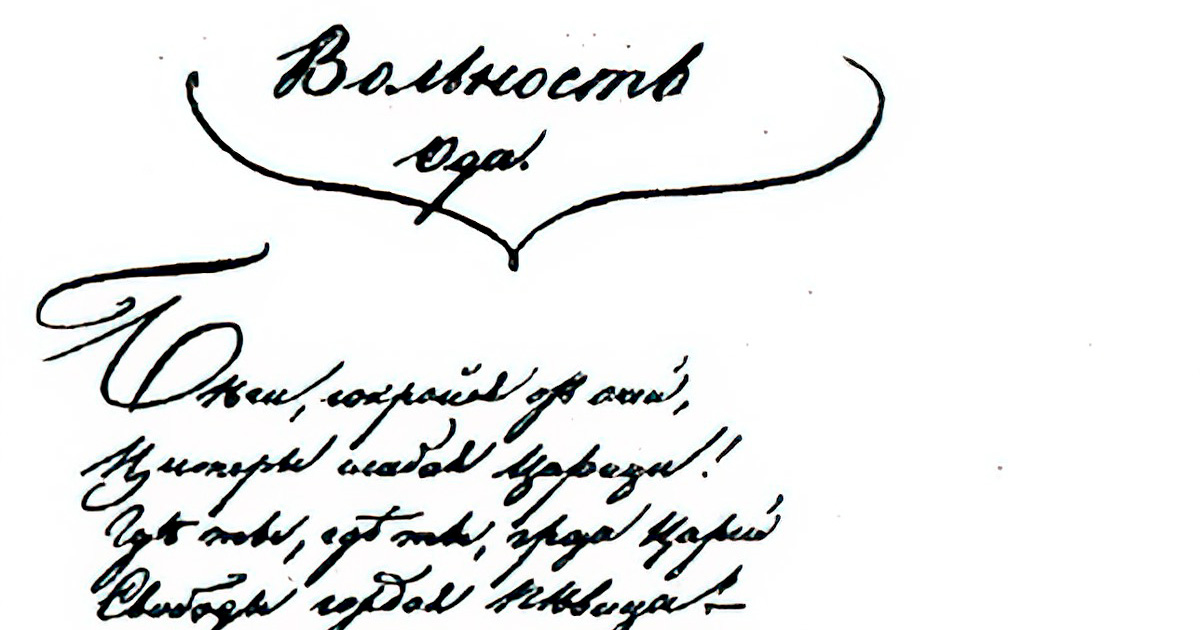 Вольность
Ода.
Бѣги, сокройся отъ очей,
Цитеры слабая Царица!
Гдѣ ты, гдѣ ты, гроза Царей
Свободы гордая Пѣвица? —